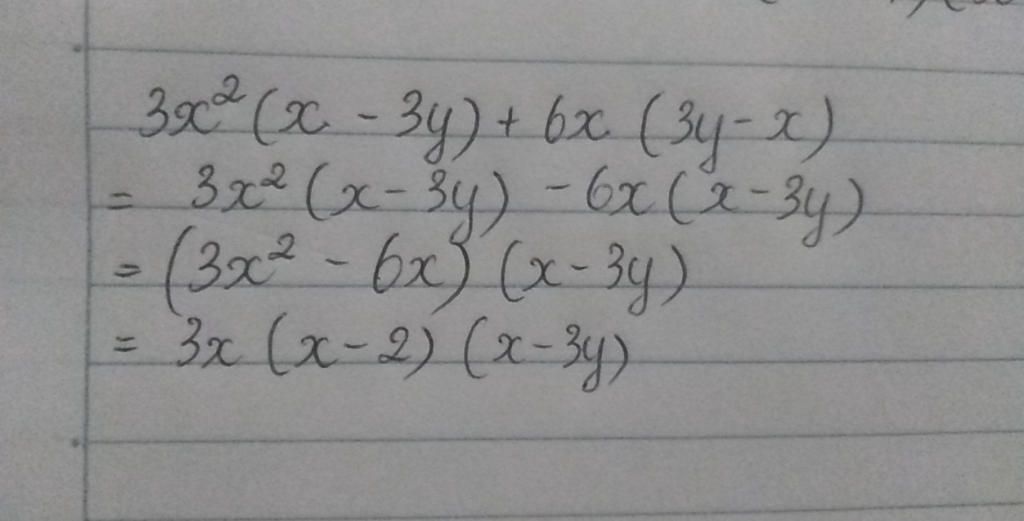 3x²(x - 3y) + 6x (3y - x)
= 3x² (x - 3y) - 6x (x - 3y)
= (3x² - 6x) (x - 3y)
= 3x (x - 2) (x - 3y)